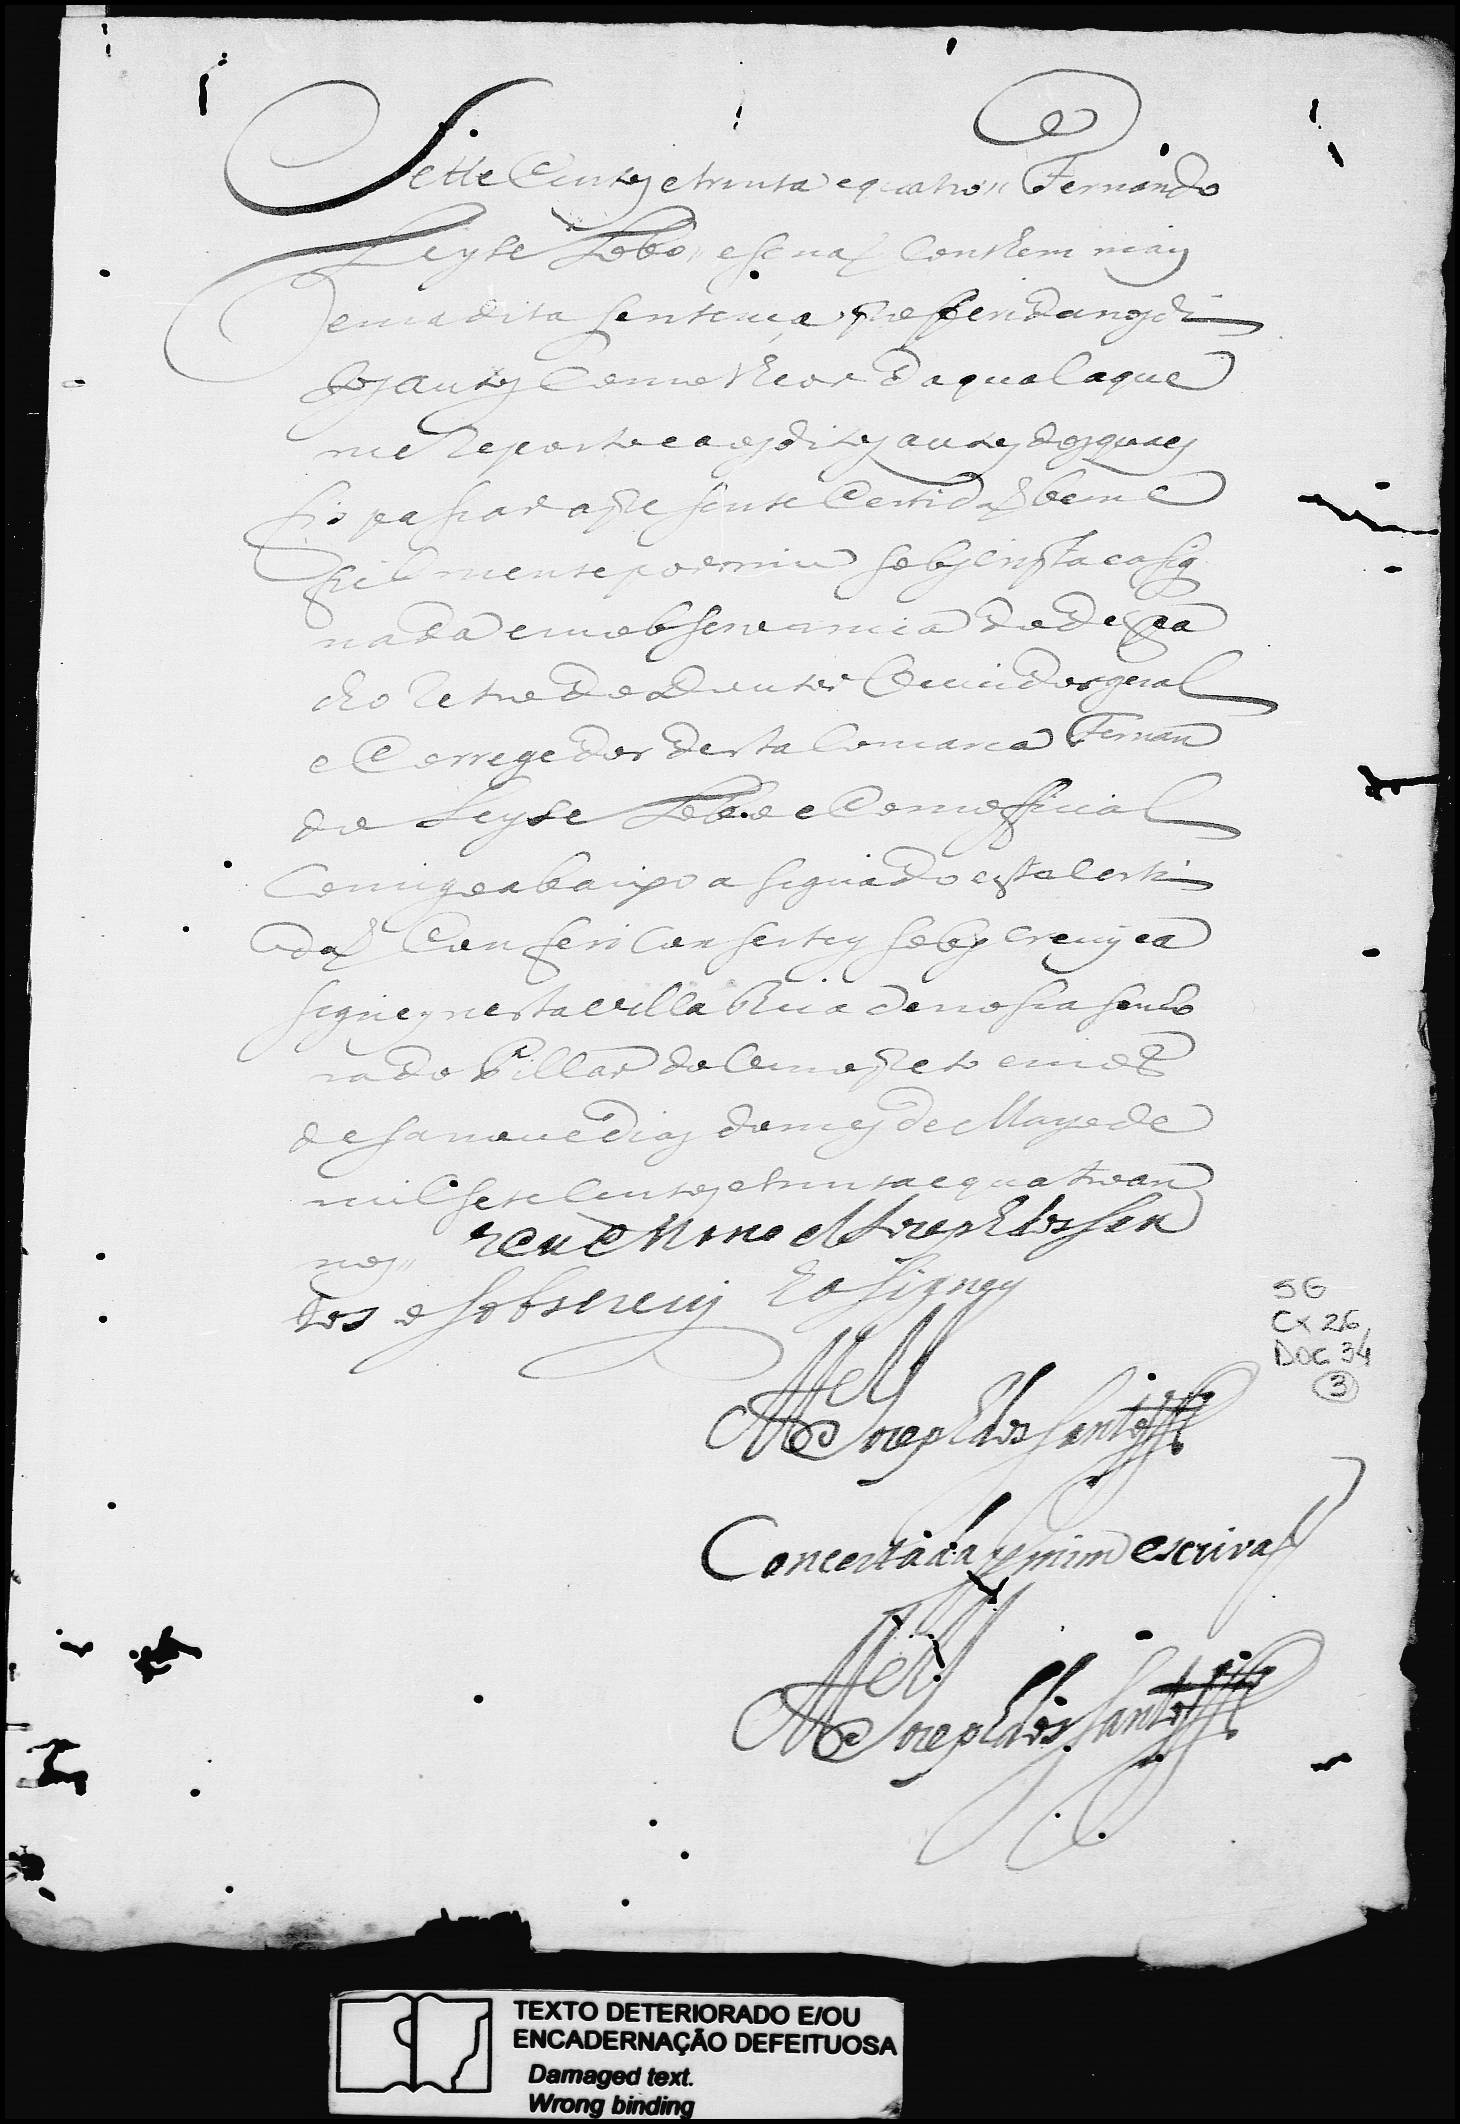 Sette Centos e trinta e quatro" Fernando
Leyte Lobo" e se naõ Conthem mais
em a dita sentença profferida nos di
tos autos Como theor da qual a que
me Reporto e aos ditos autos dos quaes
fis passar a prezente Certidaõ bem e
fielmente por mim sobscripta e asig
nada em observancia do despa
cho retro do Doutor Ouuidor geral
e Corregedor desta Comarca Fernan
do Leyte Lobo e Com official
Comigo abaixo asignado esta Certi
daõ Conferi Consertey sobscrevy e a
signey nesta Villa Rica de nossa senho
ra do Pillar do Ouro preto em os
dias do mes de Mayo de
mil sete Centos e trinta e quatro an
nos" e eu Manoel dos San
tos e sobscreuy e asigney
Mel
dos Santos
Concertada p mim escrivaõ
Mel
dos Santos
SG
CX 26
DOC 34
3
TEXTO DETERIORADO E/OU
ENCADERNAÇÃO DEFEITUOSA
Damaged text.
Wrong binding